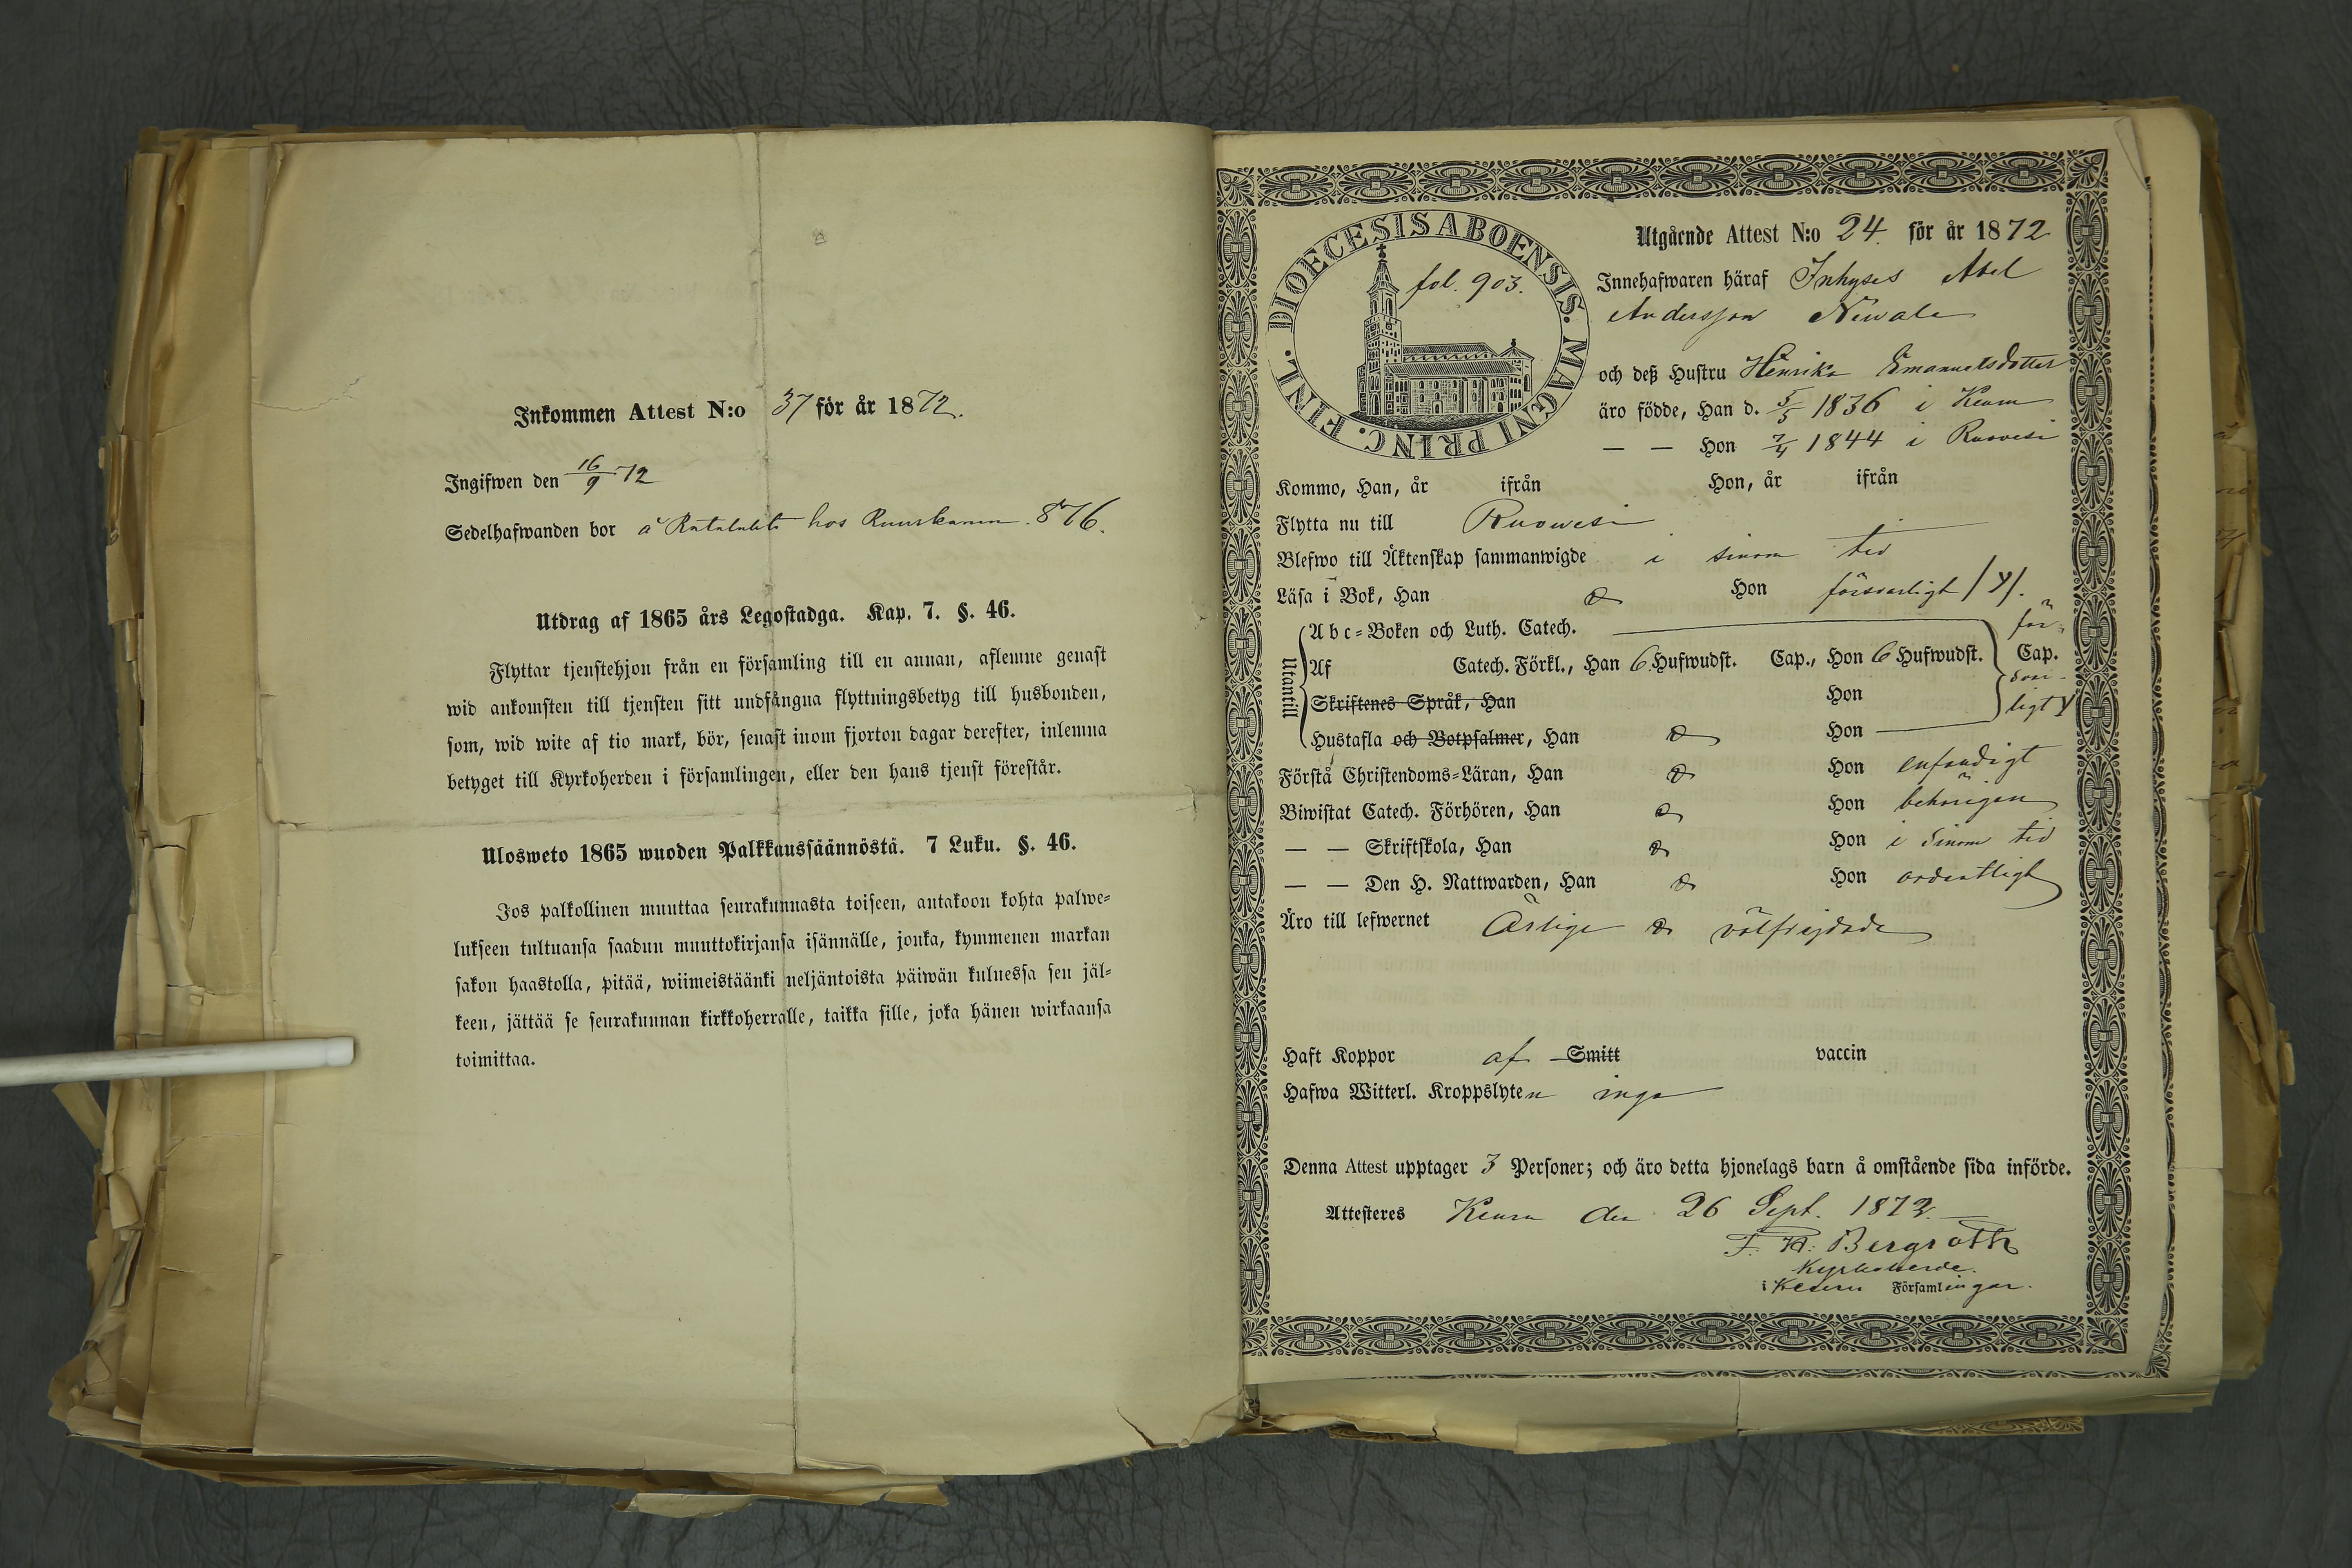 Inkommen Attest N:o 37 för år 1872.
Ingifwen den 16/9 72
Sedelhafwanden bor å hos 876.
Utdrag af 1865 års Legostadga. Kap. 7. §. 46.
Flyttar tjenstehjon från en församling till en annan, aflemne genast
wid ankomsten till tjensten sitt undfångna flyttningsbetyg till husbonden,
som, wid wite af tio mark, bör, senast inom fjorton dagar derefter, inlemna
betyget till Kyrkoherden i församlingen, eller den hans tjenst förestår.
Ulosweto 1865 wuoden Palkkaussäännöstä. 7 Luku. §. 46.
Jos palkollinen muuttaa seurakunnasta toiseen, antakoon kohta palwe-
lukseen tultuansa saadun muuttokirjansa isännälle, jonka, kymmenen markan
sakon haastolla, pitää, wiimeistäänki neljäntoista päiwän kuluessa sen jäl-
keen, jättää se seurakunnan kirkkoherralle, taikka sille, joka hänen wirkaansa
toimittaa.
DIOECESIS ABOENSIS. MAGNI PRINC. FINL.
fol. 903.
Utgående Attest N:o 24. för år 1872
Innehafwaren häraf Inhyses Abel
Andersson Newala
och deß Hustru Henrika Emanuelsdotter
äro födde, Han d. 5/5 1836 i Keuru
— — Hon 7/4 1844 i Ruovesi
Kommo, Han, år ifrån Hon, år ifrån
Flytta nu till Ruovesi
Blefwo till Äktenskap sammanwigde i sinom tid
Läsa i Bok, Han & Hon försvarligt /y/.
Utantill
Abc-Boken och Luth. Catech. för-
Af Catech. Förkl., Han 6 Hufwudst. Cap., Hon 6 Hufwudst. Cap.
svar-
Skriftenes Språk, Han Hon ligt y
Hustafla och Botpsalmer, Han & Hon
Förstå Christendoms-Läran, Han & Hon enfaldigt
Biwistat Catech. Förhören, Han & Hon behörigen
— — Skriftskola, Han & Hon i sinom tid
— — Den H. Nattwarden, Han & Hon ordentligt
Äro till lefwernet Ärlige & välfrejdade
Haft Koppor af Smitt vaccin
Hafwa Witterl. Kroppslyten inga
Denna Attest upptager 3 Personer; och äro detta hjonelags barn å omstående sida införde.
Attesteres Keuru den 26 Sept. 1872.
F. W. Bergroth
Kyrkoherde.
i Keuru Församlingar.